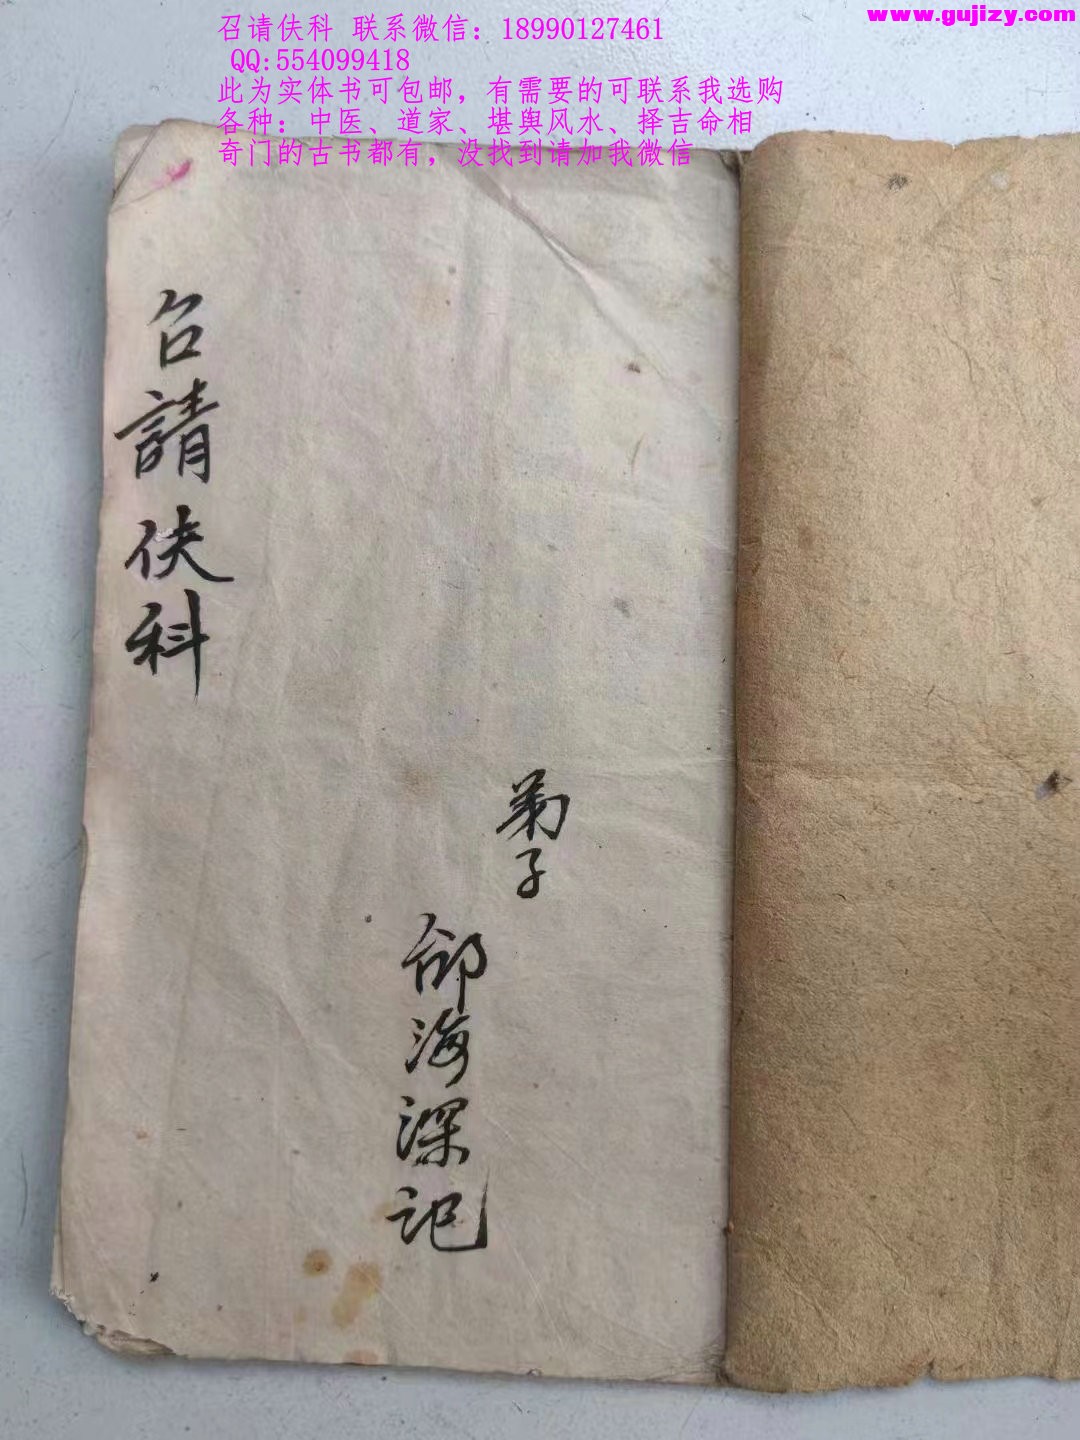 www.gujizy.com
召请伕科 联系微信：18990127461
QQ:554099418
此为实体书可包邮，有需要的可联系我选购
各种：中医、道家、堪舆风水、择吉命相
奇门的古书都有，没找到请加我微信
召請伕科
弟子
邰海深記